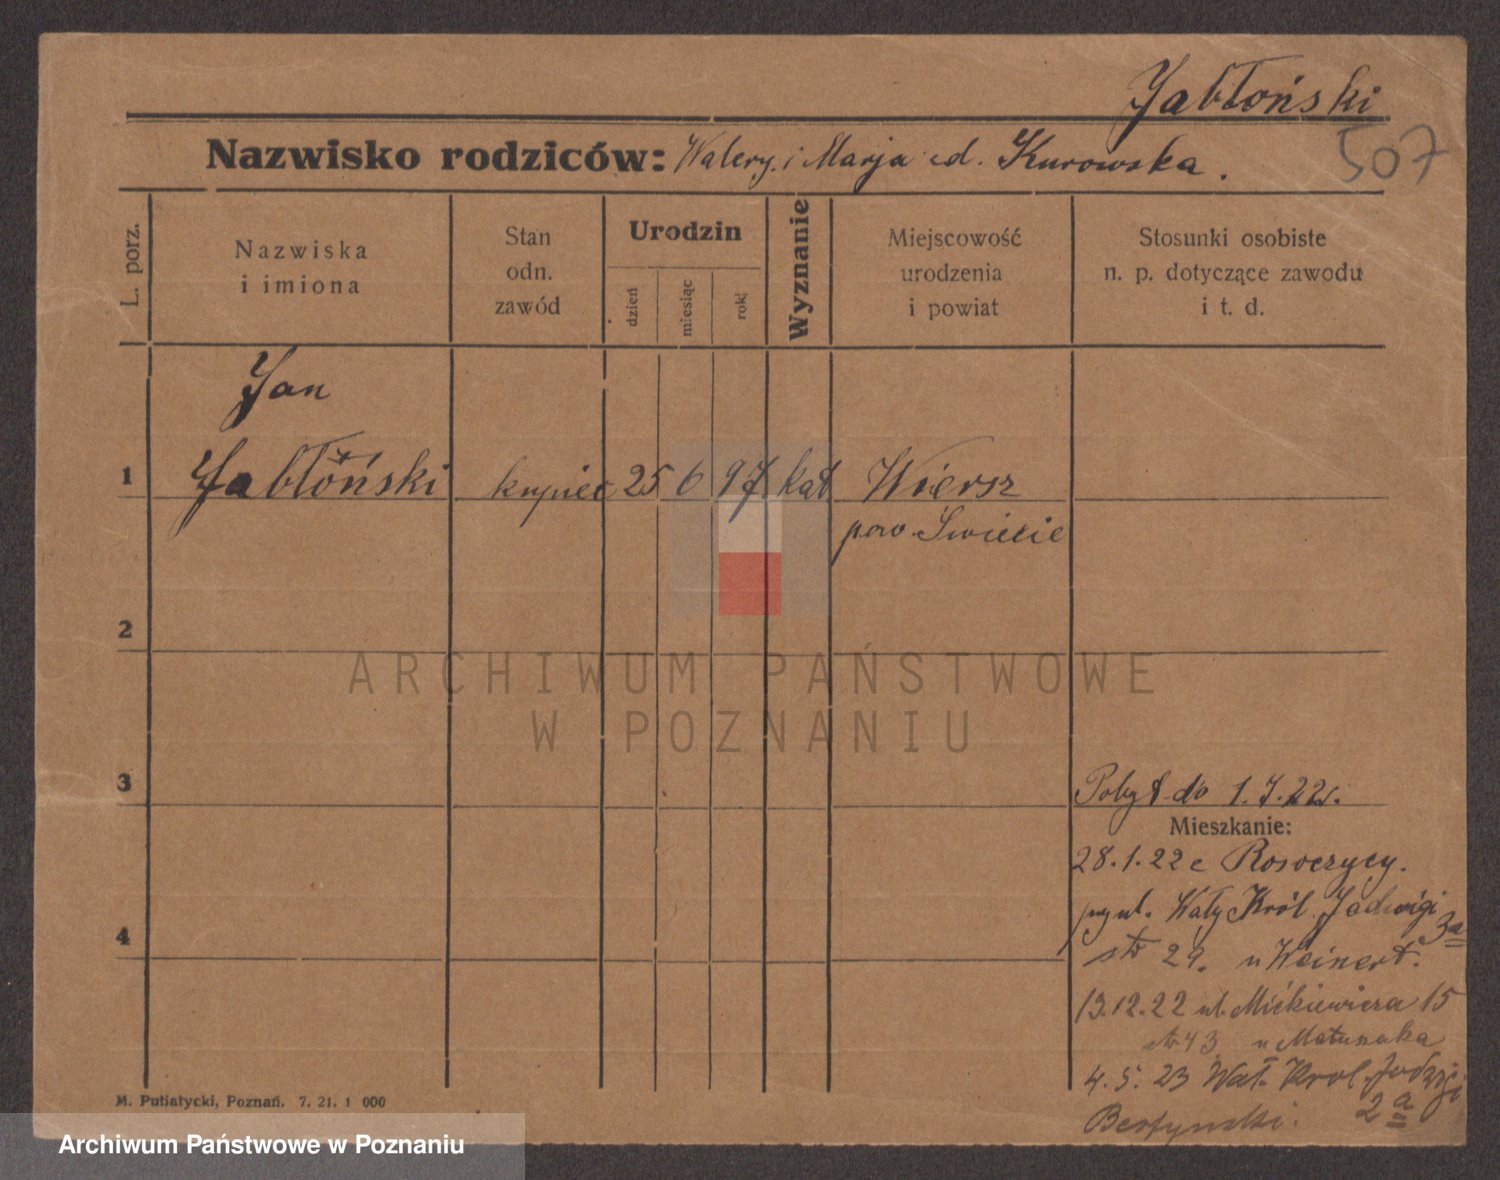 Jabłoński
Nazwisko rodziców: Walery i Marja d. Kurowska.
507
L. porz.
Nazwiska
i imiona
Stan
odn.
zawód
Urodzin
dzień
miesiąc
rok
Wyznanie
Miejscowość
urodzenia
i powiat
Stosunki osobiste
n. p. dotyczące zawodu
i t. d.
Jan
1 Jabłoński kupiec 25 6 97 kat Wiersz
pow. Świecie
2
ARCHIWUM PAŃSTWOWE
W POZNANIU
3
Pobyt do 1.7.22r.
Mieszkanie:
28.1.22 z
ul. Wały Król. Jadwigi 3a
4
29. u Weinert.
13.12.22 ul. Mickiewicza 15
43 u
4.5.23 Wał. Krol. Jadwigi
2a
M. Putiatycki, Poznań. 7. 21. 1 000
Archiwum Państwowe w Poznaniu